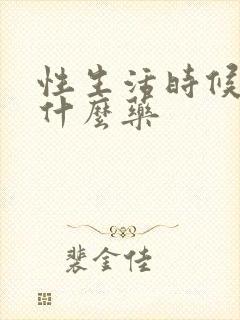 性生活時候
什麼藥
裴金佳